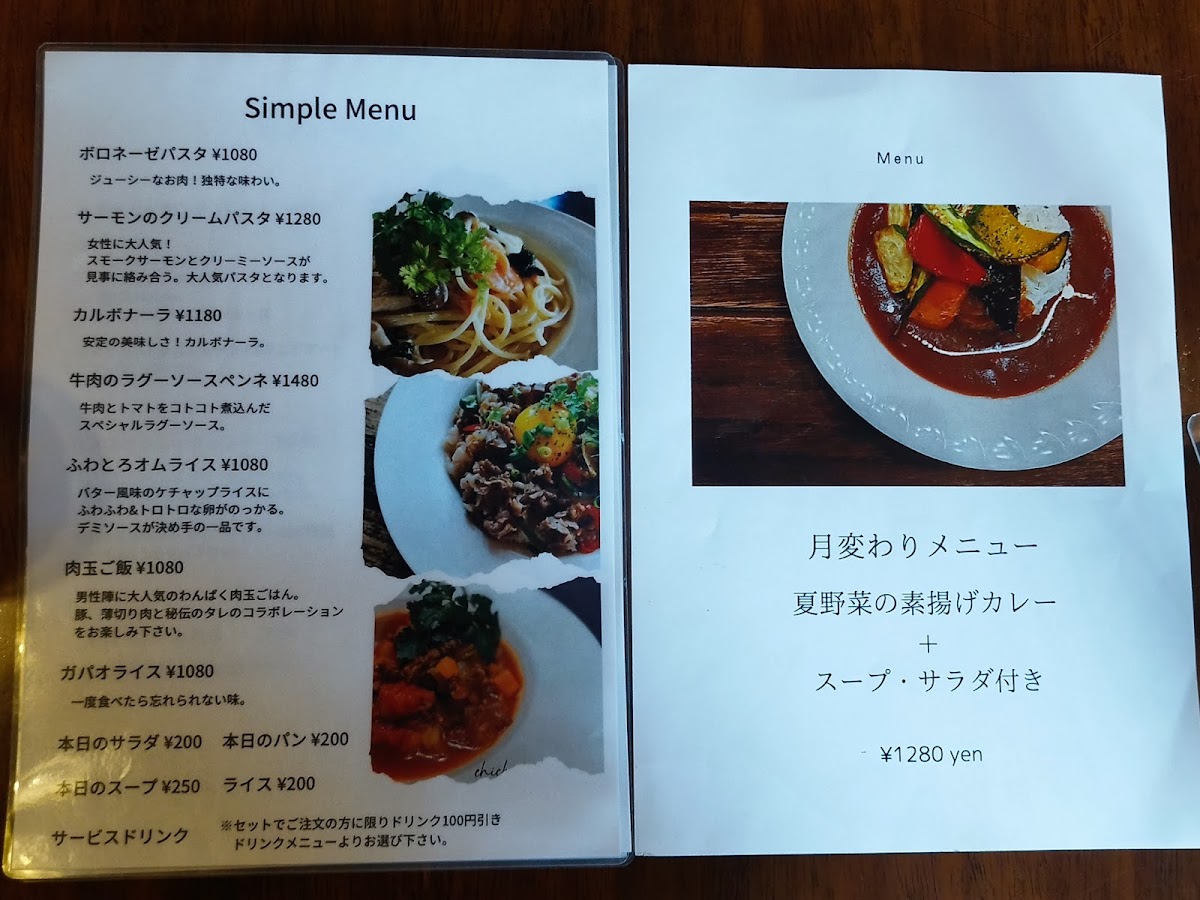 Simple Menu
ボロネーゼパスタ ¥1080
ジューシーなお肉！独特な味わい。
サーモンのクリームパスタ ¥1280
女性に大人気！
スモークサーモンとクリーミーソースが
見事に絡み合う。大人気パスタとなります。
カルボナーラ ¥1180
安定の美味しさ！カルボナーラ。
牛肉のラグーソースペンネ ¥1480
牛肉とトマトをコトコト煮込んだ
スペシャルラグーソース。
ふわとろオムライス ¥1080
バター風味のケチャップライスに
ふわふわ&トロトロな卵がのっかる。
デミソースが決め手の一品です。
肉玉ご飯 ¥1080
男性陣に大人気のわんぱく肉玉ごはん。
豚、薄切り肉と秘伝のタレのコラボレーション
をお楽しみ下さい。
ガパオライス ¥1080
一度食べたら忘れられない味。
本日のサラダ ¥200 本日のパン ¥200
本日のスープ ¥250 ライス ¥200
サービスドリンク ※セットでご注文の方に限りドリンク100円引き
ドリンクメニューよりお選び下さい。
Menu
月変わりメニュー
夏野菜の素揚げカレー
＋
スープ・サラダ付き
¥1280 yen